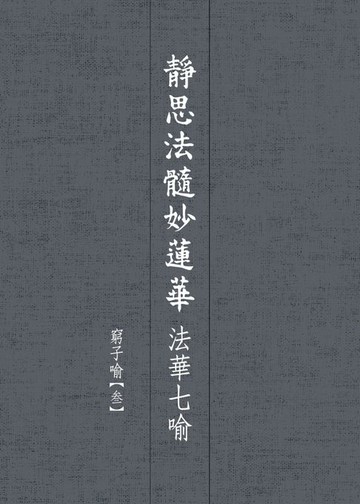 靜思法髓妙蓮華 法華七喻
窮子喻【叁】